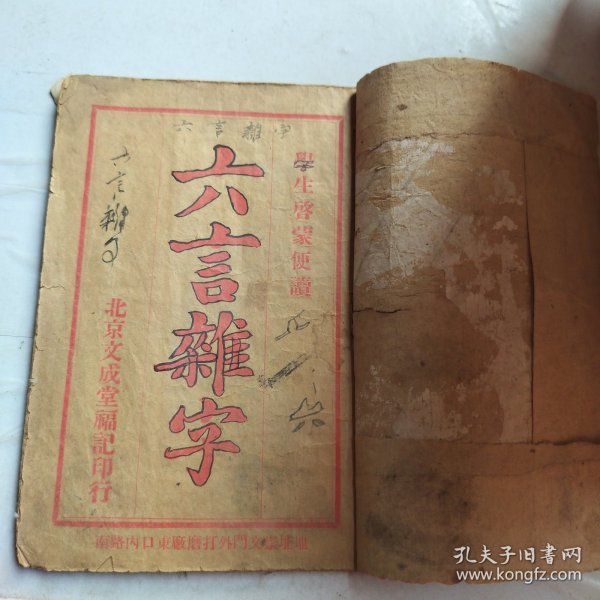 六言雜字
學生啓蒙便讀
六言雜字
六言雜字
北京文成堂福記印行
地址崇文門外打磨廠東口內路南
孔夫子旧书网
www.kongfz.com